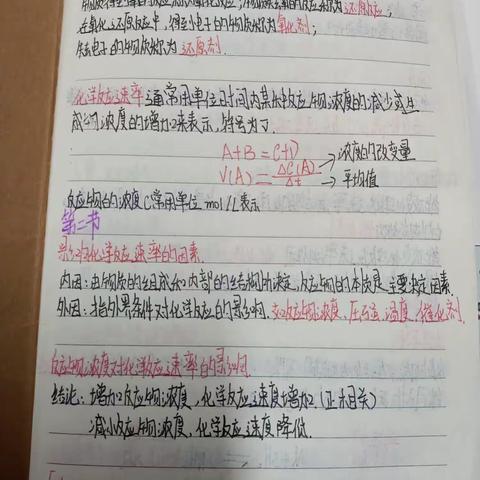 在氧化还原反应中，得到电子的物质称为氧化剂；
失去电子的物质称为还原剂.
化学反应速率：通常用单位时间内某反应物浓度的减少或生
成物浓度的增加来表示，符号为γ.
A+B=C+D
V(A)=Δc(A)/Δt
→浓度的改变量
→平均值
反应物的浓度C常用单位mol/L表示
第二节
影响化学反应速率的因素.
内因：由物质的组成和内部的结构所决定，反应物的本质是主要决定因素.
外因：指外界条件对化学反应的影响.反应物浓度、压强、温度、催化剂.
反应物浓度对化学反应速率的影响
结论：增加反应物浓度，化学反应速度增加（正相关）
减小反应物浓度，化学反应速度降低.